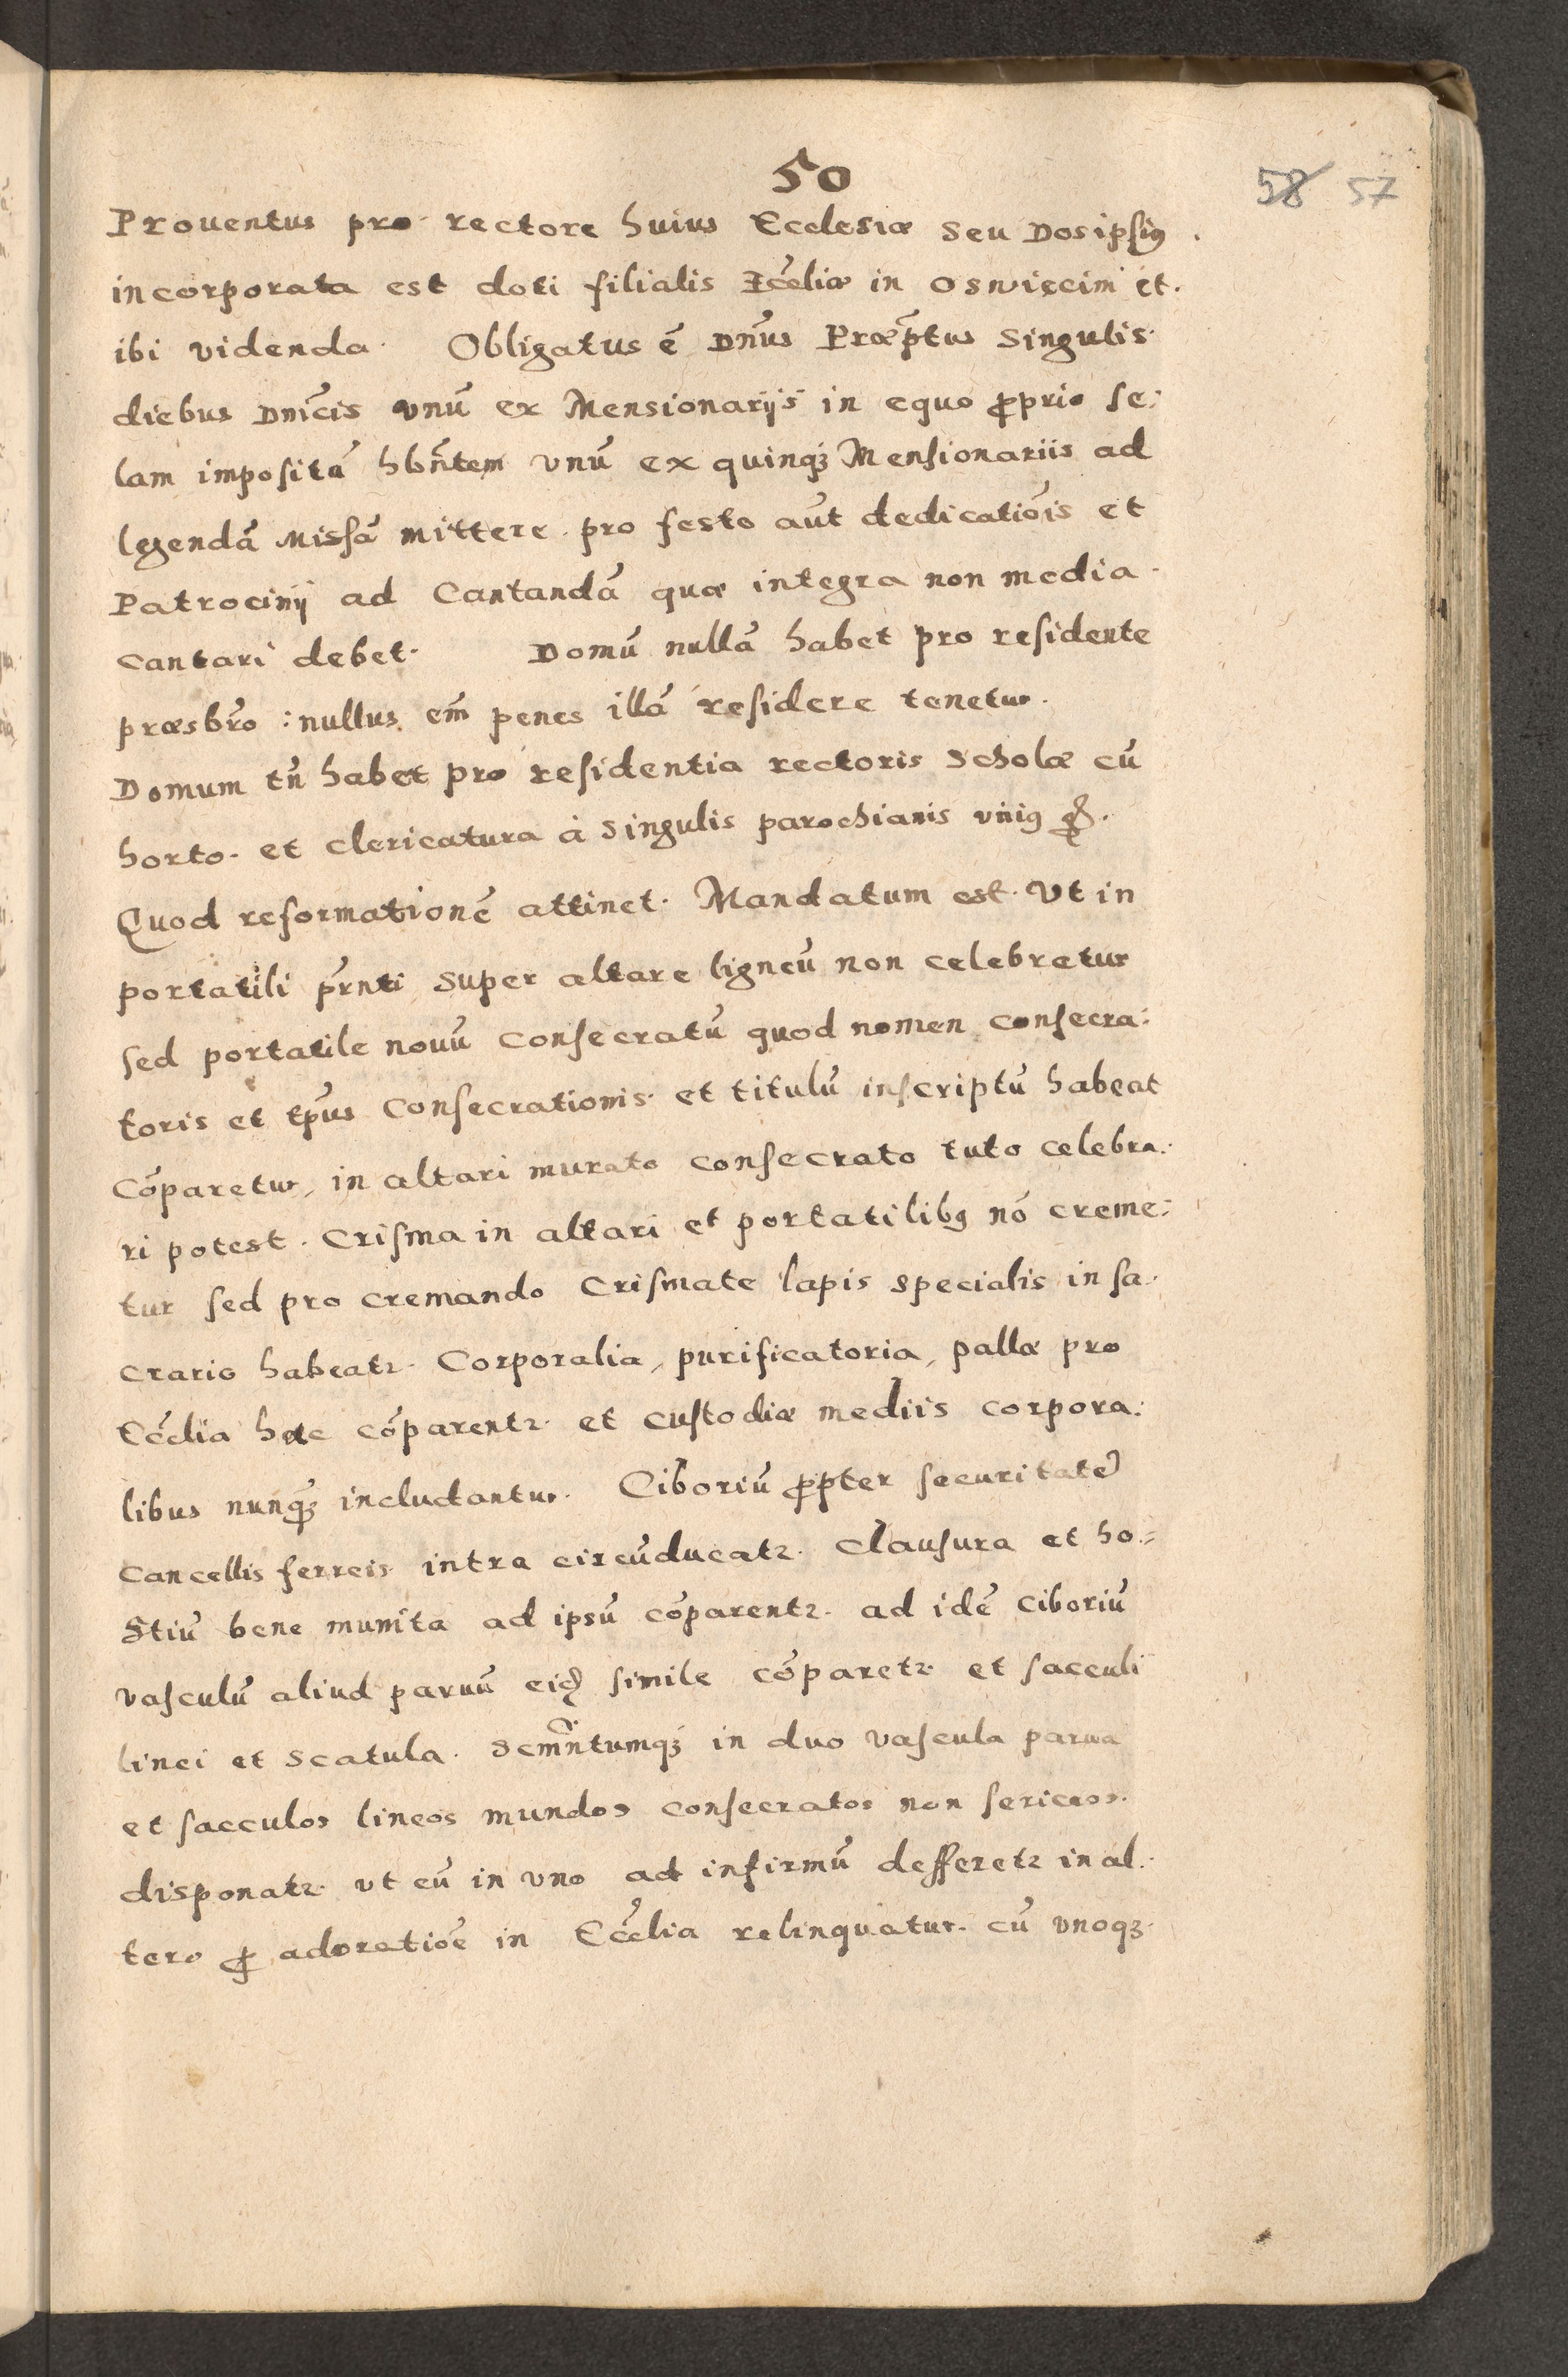 50
58 57
Prouentus pro rectore huius Ecclesiæ seu Dos ipsiꝰ
incorporata est doti filialis Eccĺiæ in Oswiecim et
ibi videnda. Obligatus ē Dn̄us Præp̄tus singulis
diebus Dn̄icis vnū ex Mensionarijs in equo ꝓprio se:
lam impositā hbn̄tem vnū ex quinqꝫ Mensionariis ad
legendā Missā mittere. pro festo aūt dedicatiōis et
Patrocinij ad Cantandā quæ integra non media
cantari debet. Domū nullā habet pro residente
præsbr̄o : nullus em̄ penes illā residere tenetur.
Domum tn̄ habet pro residentia rectoris Scholæ cū
horto. et clericatura à singulis parochianis vniꝰ
Quod reformationē attinet. Mandatum est. Vt in
portatili pr̄nti super altare ligneū non celebretur
sed portatile nouū consecratū quod nomen consecra:
toris et tp̄us consecrationis et titulū inscriptū habeat
cōparetur, in altari murato consecrato tuto celebra.
ri potest. Crisma in altari et portatilibꝰ nō creme:
tur sed pro cremando Crismate lapis specialis in sa.
crario habeatꝛ. Corporalia, purificatoria, pallæ pro
Eccĺia hac cōparentꝛ. et custodiæ mediis corpora:
libus nunqꝫ includantur. Ciboriū ꝓpter securitatē
Cancellis ferreis intra circūducatꝛ. Clausura et ho.=
stiū bene munita ad ipsū cōparentꝛ. ad idē ciboriū
vasculū aliud paruū eid simile cōparetꝛ et sacculi
linei et scatula. Scm̄ntumqꝫ in duo vascula parua
et sacculos lineos mundos consecratos non sericeos.
disponatꝛ. vt cū in vno ad infirmū defferetꝛ in al.
tero ꝓ adoratiōe in Eccĺia relinquatur. cū vnoqꝫ